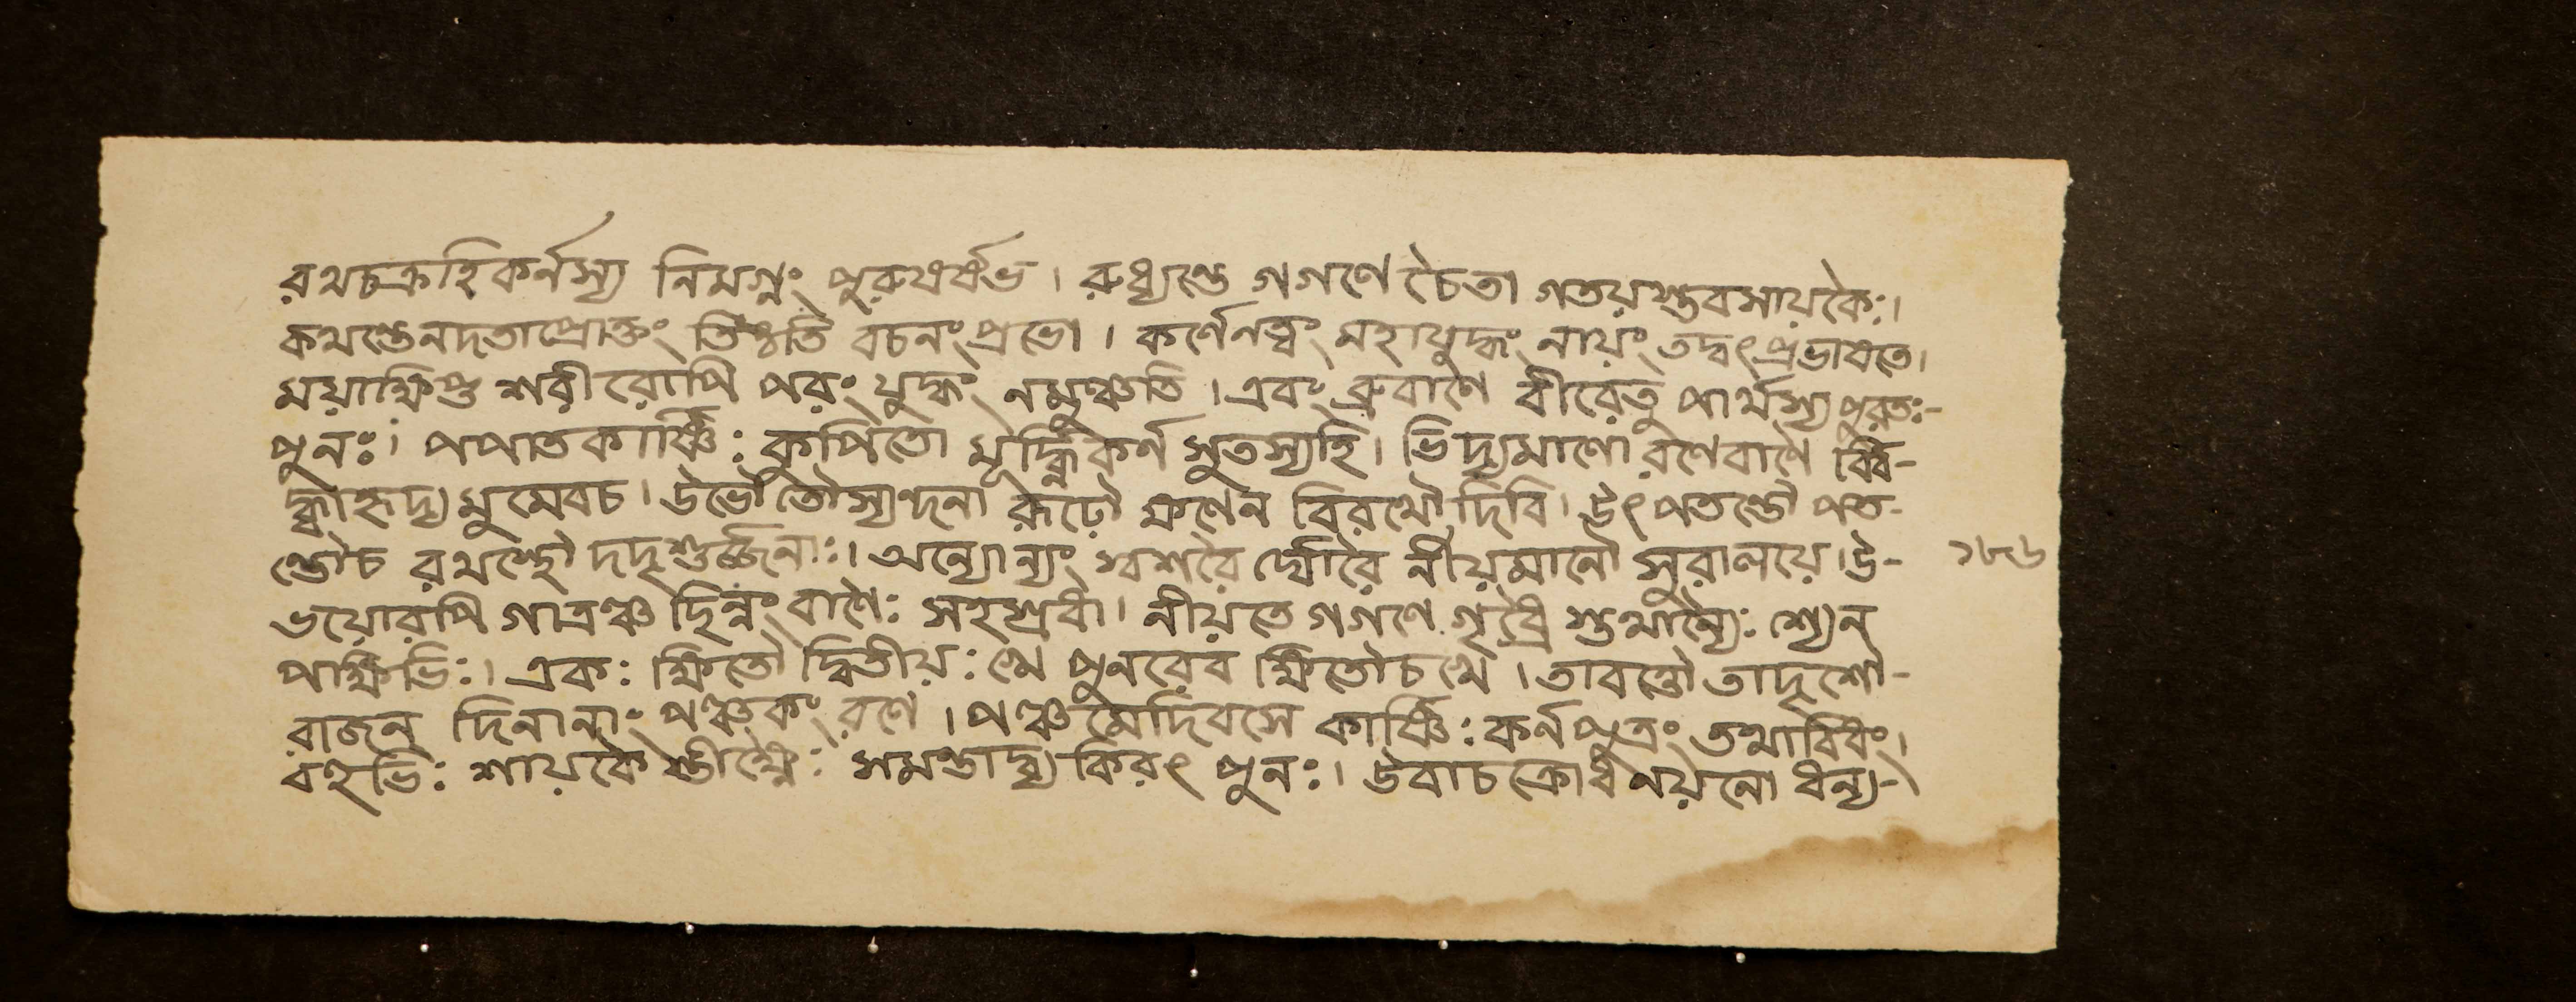 রথচক্রহিকর্নস্য নিমগ্নং পুরুষর্ষভ। রুধ্যন্তে গগণে চৈতা গতয়স্তবসায়কৈঃ।
কথন্তেনদতাপ্রোক্তং তিষ্ঠতি বচনং প্রভো। কর্ণেনত্বং মহাযুদ্ধং নায়ং তদ্বৎপ্রভাষতে।
ময়াক্ষিপ্ত শরীরোপি পরং যুদ্ধং নমুঞ্চতি। এবং ব্রুবাণে বীরেতু পার্থস্যপুরতঃ-
পুনঃ। পপাতকার্ষ্ণিঃ কুপিতো মূর্দ্ধ্নিকর্ন সুতস্যহি। ভিদ্যমাণো রণেবাণৈ র্ব্বি-
দ্ধ্বাহৃদ্য মুমেবচ। উভৌতৌস্যন্দনা রূঢৌ ক্ষণেন বিরথৌ দিবি। উৎপতন্তৌ পত-
ন্তৌচ রথস্থৌ দদৃশুর্জ্জনাঃ। অন্যোন্যং স্বশরৈ র্ঘোরৈ র্নীয়মানৌ সুরালয়ে। উ-
ভয়োরপি গাত্রঞ্চ ছিন্নং বাণৈঃ সহস্রধা। নীয়তে গগণে গৃধ্রৈ স্তথান্যৈঃ শ্যেন
পক্ষিভিঃ। একঃ ক্ষিতৌ দ্বিতীয়ঃ খে পুনরেব ক্ষিতৌচ খে। তাবন্তৌ তাদৃশৌ-
রাজন্ দিনানাং পঞ্চকং রণে। পঞ্চমেদিবসে কার্ষ্ণিঃ কর্নপুত্রং তথাবিধং।
বহুভিঃ শায়কৈ স্তীক্ষ্ণৈঃ সমন্তাদ্ব্য কিরৎ পুনঃ। উবাচ ক্রোধনয়নো ধন্য-
১৮৬